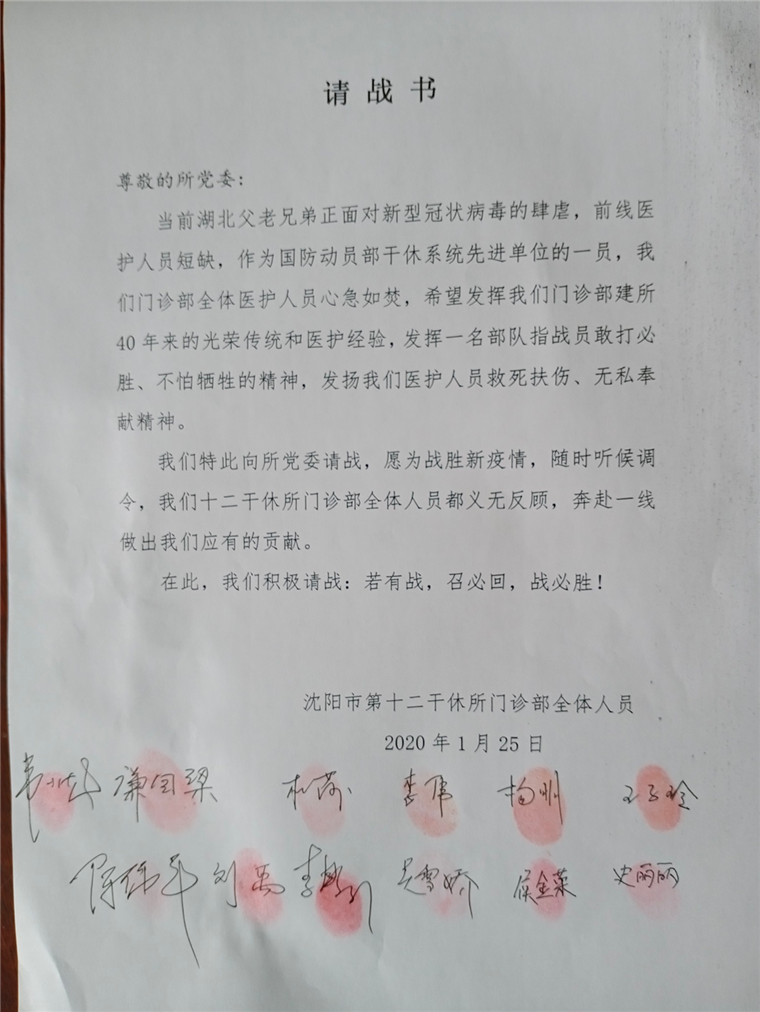 请战书
尊敬的所党委：
当前湖北父老兄弟正面对新型冠状病毒的肆虐，前线医
护人员短缺，作为国防动员部干休系统先进单位的一员，我
们门诊部全体医护人员心急如焚，希望发挥我们门诊部建所
40年来的光荣传统和医护经验，发挥一名部队指战员敢打必
胜、不怕牺牲的精神，发扬我们医护人员救死扶伤、无私奉
献精神。
我们特此向所党委请战，愿为战胜新疫情，随时听候调
令，我们十二干休所门诊部全体人员都义无反顾，奔赴一线
做出我们应有的贡献。
在此，我们积极请战：若有战，召必回，战必胜！
沈阳市第十二干休所门诊部全体人员
2020年1月25日
李伟 杨帅
刘禹 吴雪娇 侯金荣 史丽丽